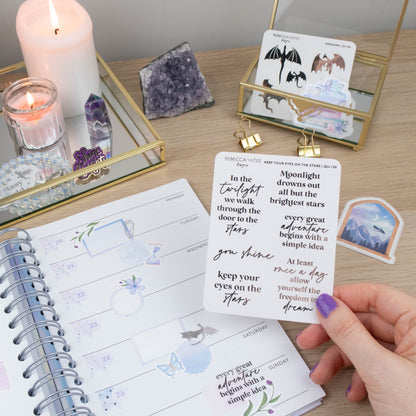 REBECCA YATES
designs
DRAGONS
REBECCA YATES
designs
KEEP YOUR EYES ON THE STARS
In the
twilight
we walk
through the
door to the
stars
Moonlight
drowns out
all but the
brightest stars
every great
adventure
begins with a
simple idea
you shine
At least
once a day
allow
yourself the
freedom to
dream
keep your
eyes on the
stars
MONDAY
20
TUESDAY
21
WEDNESDAY
22
THURSDAY
23
FRIDAY
24
SATURDAY
every great
adventure
begins with a
simple idea
SUNDAY